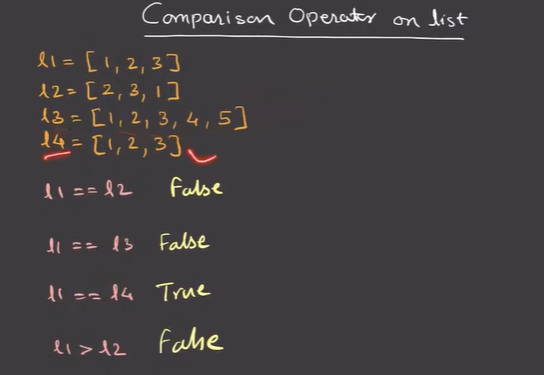 Comparison Operator on list
l1 = [1, 2, 3]
l2 = [2, 3, 1]
l3 = [1, 2, 3, 4, 5]
l4 = [1, 2, 3]
l1 == l2 False
l1 == l3 False
l1 == l4 True
l1 > l2 False